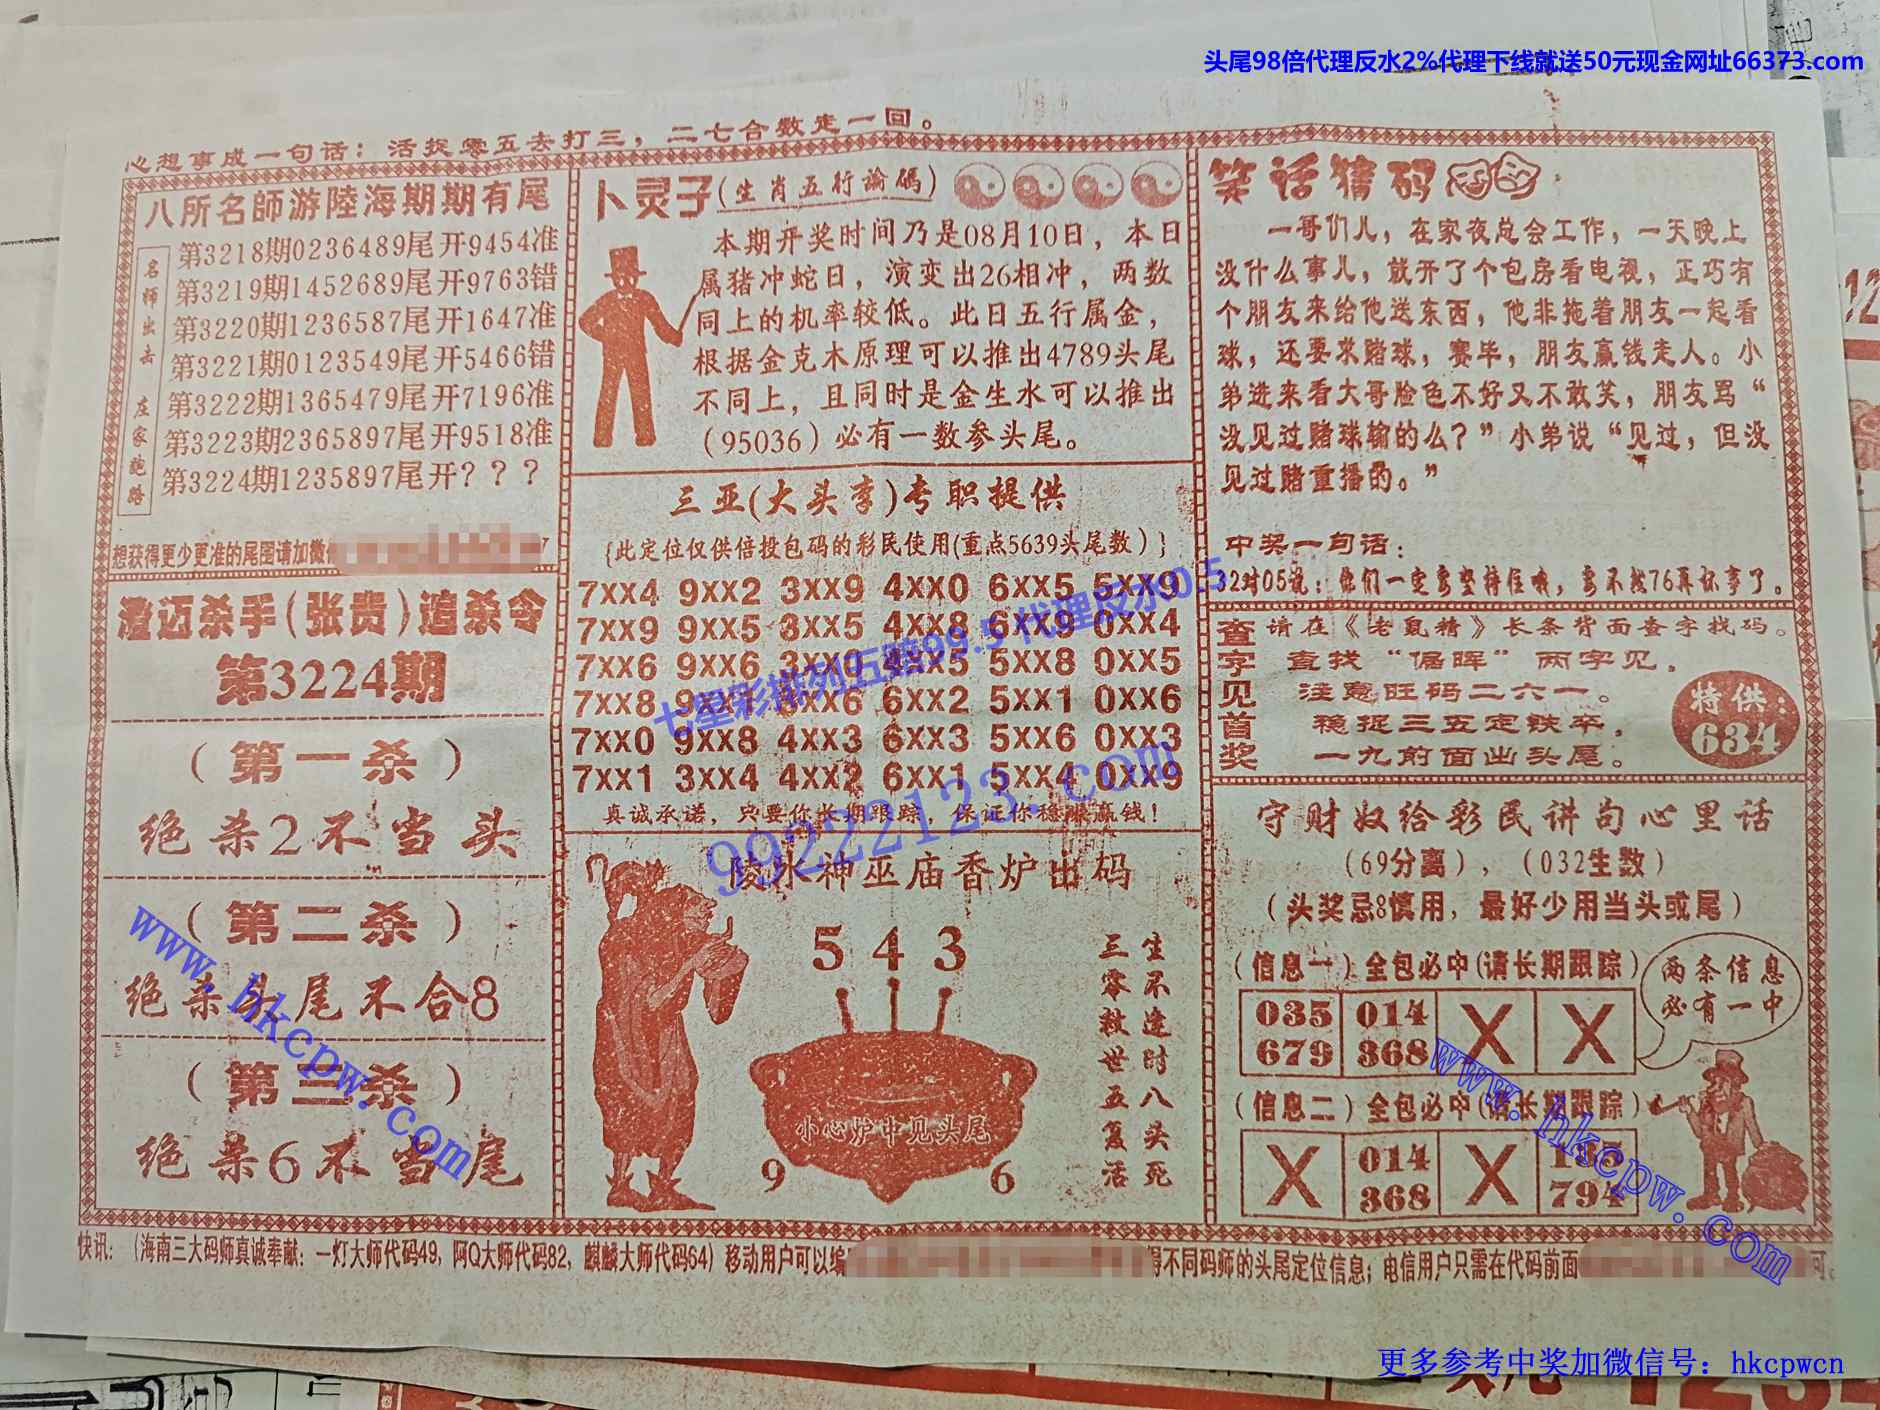 头尾98倍代理反水2%代理下线就送50元现金网址66373.com
心想事成一句话：活捉零五去打三，二七合数走一回。
八所名師游陸海期期有尾
名师出击 庄家跑路
第3218期0236489尾开9454准
第3219期1452689尾开9763错
第3220期1236587尾开1647准
第3221期0123549尾开5466错
第3222期1365479尾开7196准
第3223期2365897尾开9518准
第3224期1235897尾开？？？
想获得更少更准的尾图请加微
澄迈杀手(张贵)追杀令
第3224期
（第一杀）
绝杀2不当头
（第二杀）
绝杀头尾不合8
（第三杀）
绝杀6不当尾
卜灵子(生肖五行論碼)
本期开奖时间乃是08月10日，本日
属猪冲蛇日，演变出26相冲，两数
同上的机率较低。此日五行属金，
根据金克木原理可以推出4789头尾
不同上，且同时是金生水可以推出
（95036）必有一数参头尾。
三亚(大头李)专职提供
{此定位仅供倍投包码的彩民使用(重点5639头尾数）}
7xx4 9xx2 3xx9 4xx0 6xx5 5xx9
7xx9 9xx5 3xx5 4xx8 6xx9 0xx4
7xx6 9xx6 3xx0 4xx5 5xx8 0xx5
7xx8 9xx1 3xx6 6xx2 5xx1 0xx6
7xx0 9xx8 4xx3 6xx3 5xx6 0xx3
7xx1 3xx4 4xx2 6xx1 5xx4 0xx9
真诚承诺，只要你长期跟踪，保证你稳赚赢钱！
七星彩排列五赔99.5 代理反水0.5
99222123.com
陵水神巫庙香炉出码
5 4 3
小心炉中见头尾
9 6
生不逢时八头死
三零救世五复活
笑话猜码
一哥们儿，在家夜总会工作，一天晚上
没什么事儿，就开了个包房看电视，正巧有
个朋友来给他送东西，他非拖着朋友一起看
球，还要求赌球，赛毕，朋友赢钱走人。小
弟进来看大哥脸色不好又不敢笑，朋友骂“
没见过赌球输的么？”小弟说“见过，但没
见过赌重播的。”
中奖一句话：
32对05说：他们一定要坚持住哦，要不然76再坏事了。
查字见首奖
请在《老鼠精》长条背面查字找码。
查找“倨晖”两字见，
注意旺码二六一。
稳捉三五定铁卒，
一九前面出头尾。
特供：
634
守财奴给彩民讲句心里话
（69分离），（032生数）
（头奖忌8慎用，最好少用当头或尾）
（信息一）全包必中(请长期跟踪）
035 014 X X
679 368
两条信息
必有一中
（信息二）全包必中(请长期跟踪）
X 014 X
368 794
快讯：（海南三大码师真诚奉献：一灯大师代码49, 阿Q大师代码82, 麒麟大师代码64）移动用户可以编
得不同码师的头尾定位信息；电信用户只需在代码前面
www.hkcpw.com
www.hkcpw.com
更多参考中奖加微信号：hkcpwcn